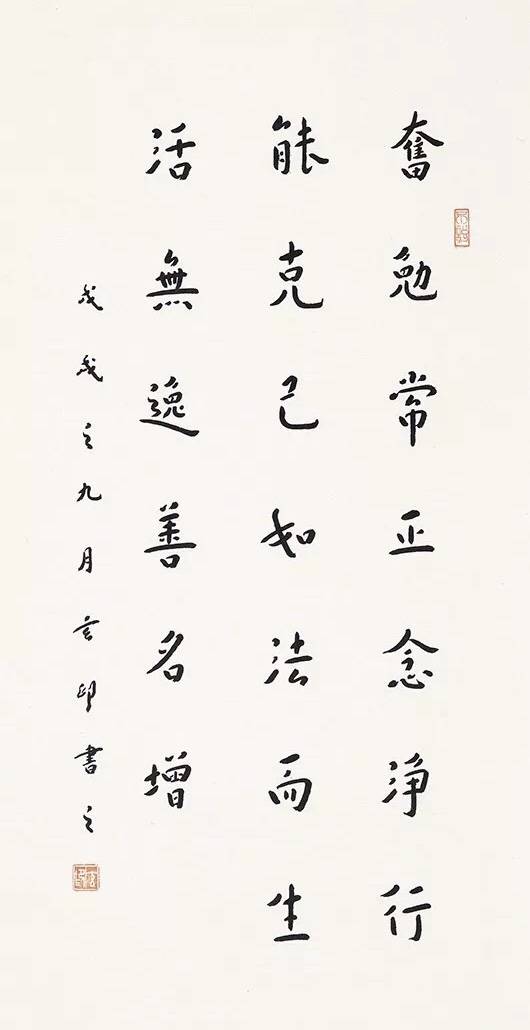 奮勉常正念淨行
能克己如法而生
活無逸善名增
戊戌之九月玄印書之